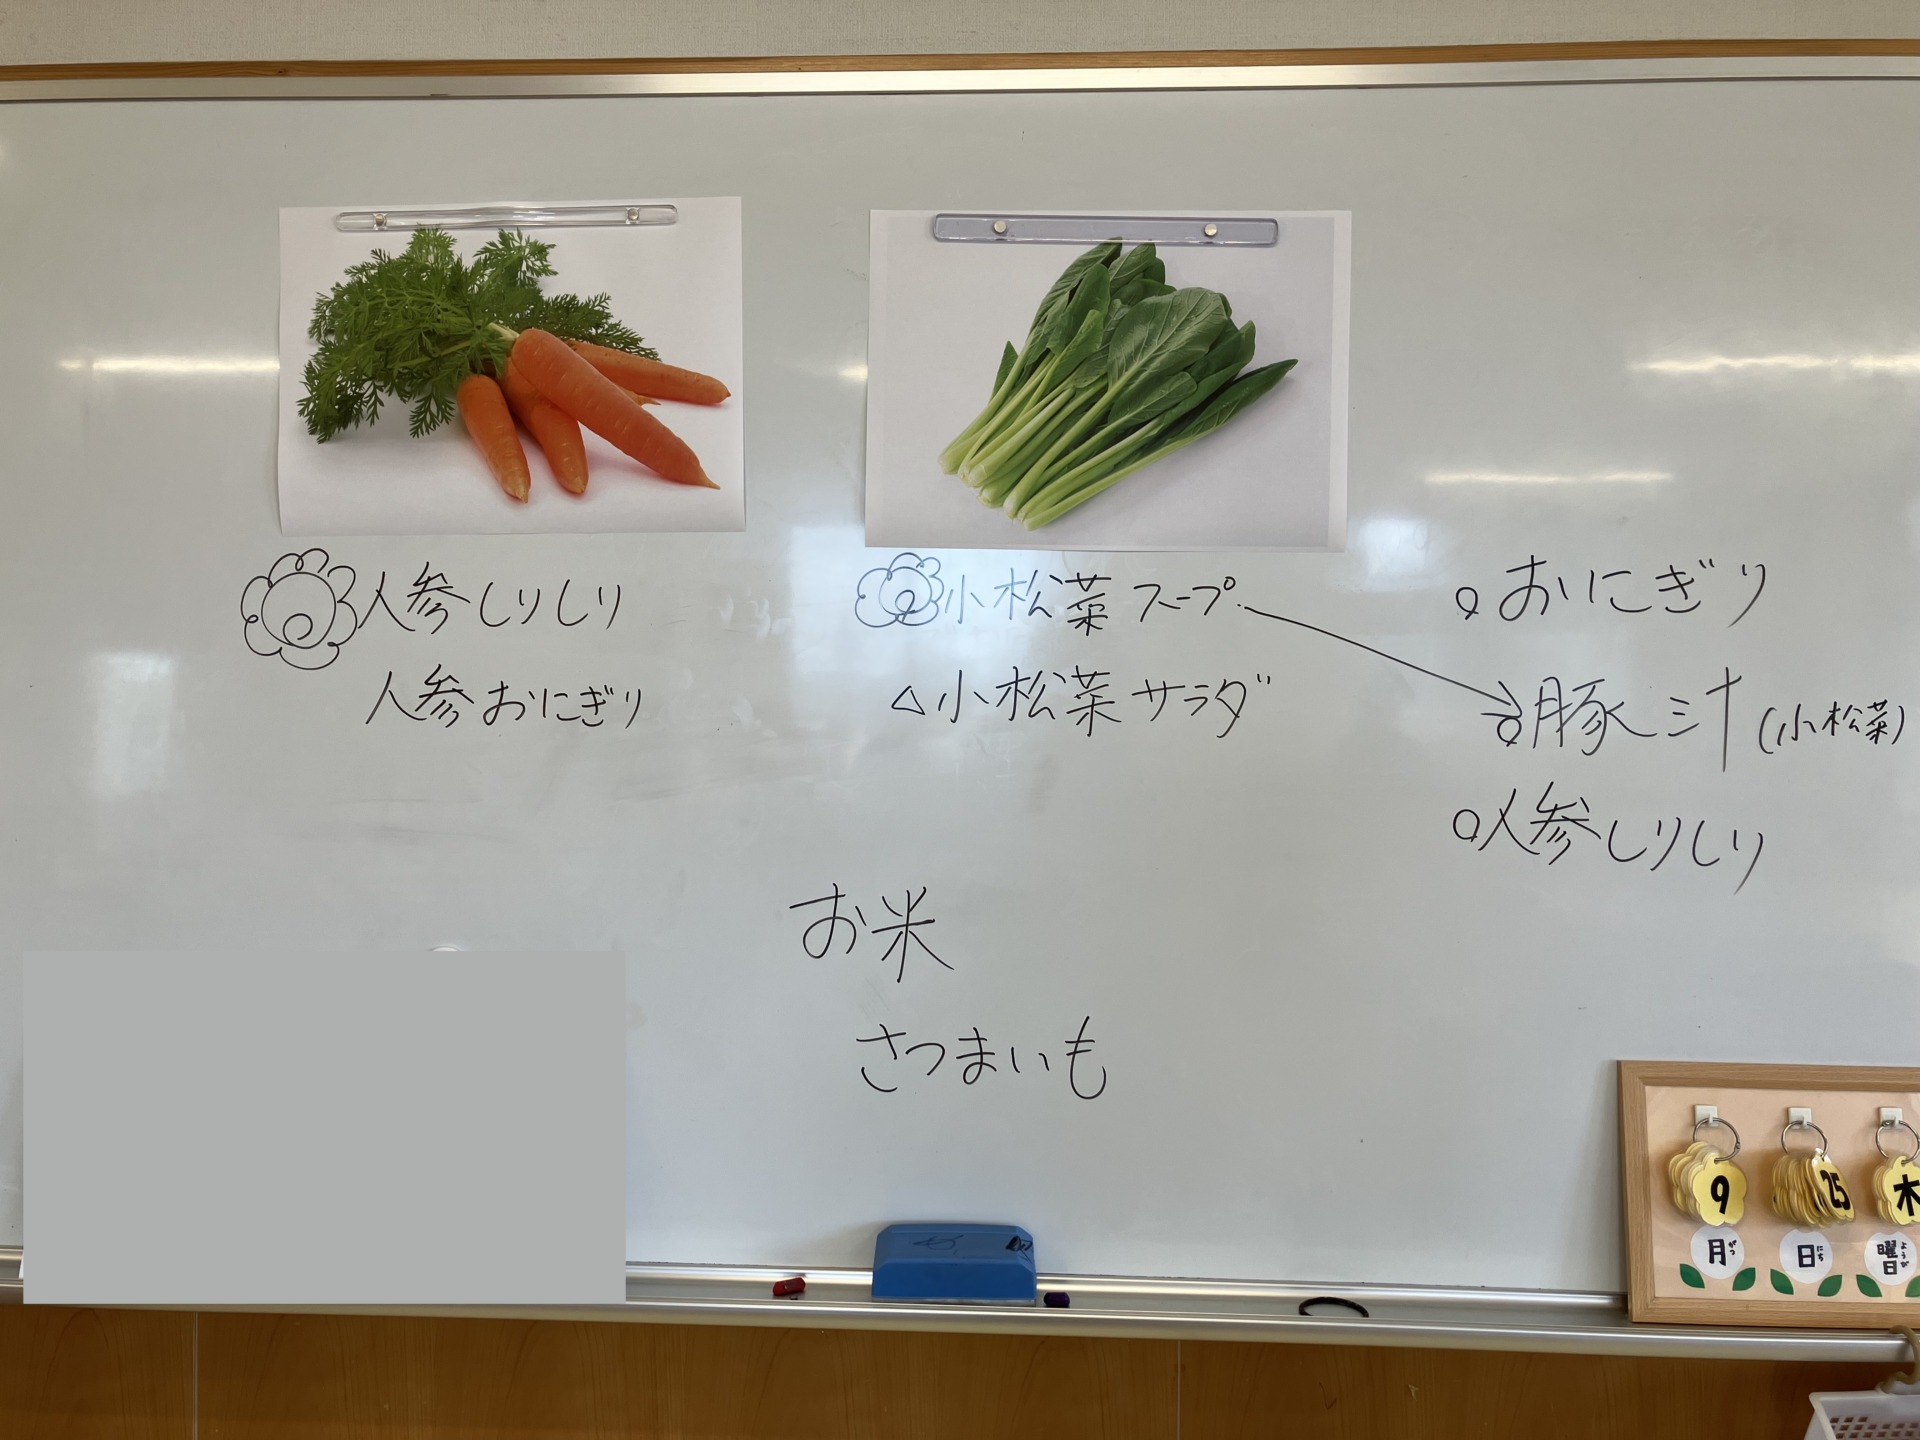 人参しりしり
人参おにぎり
小松菜スープ
△小松菜サラダ
おにぎり
豚汁(小松菜)
人参しりしり
お米
さつまいも
9
月
がつ
25
日
にち
木
曜日
ようび